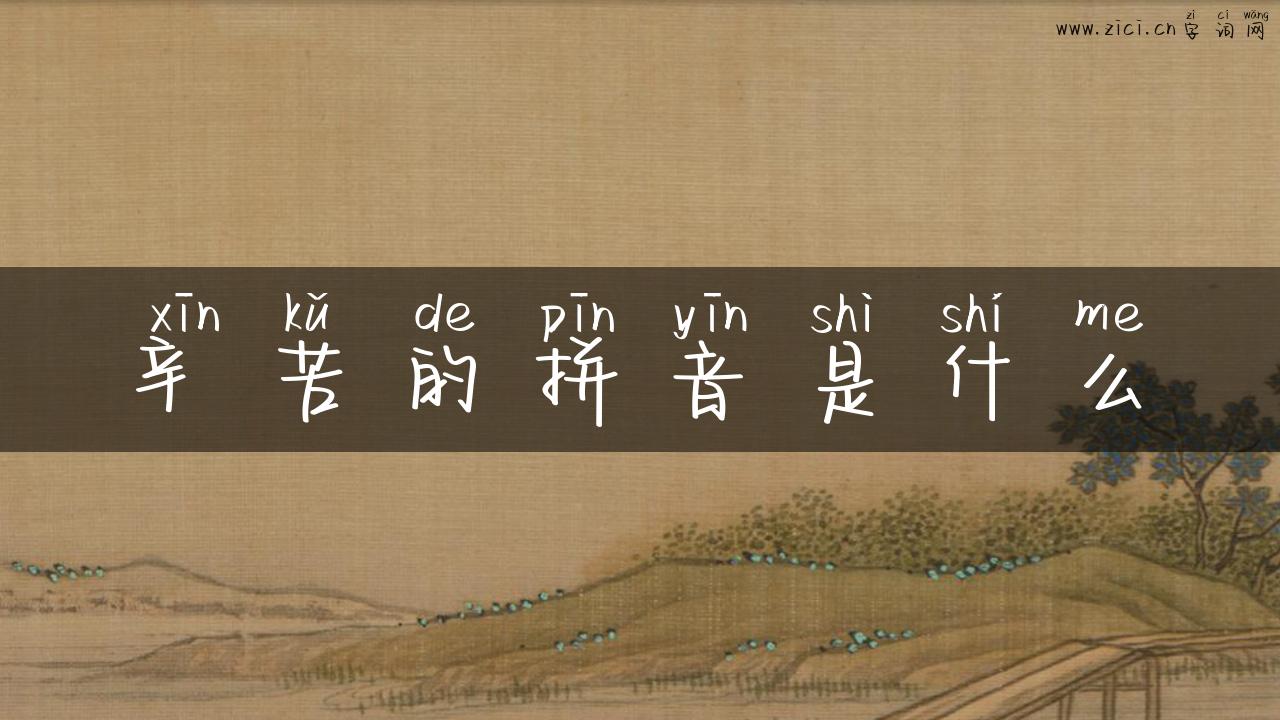 zì cí wǎng
www.zici.cn字词网
xīn kǔ de pīn yīn shì shí me
辛苦的拼音是什么